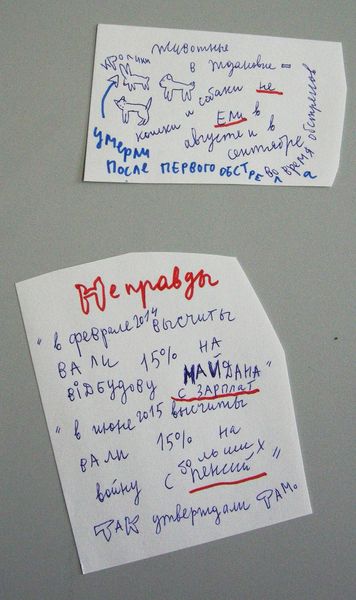 Животные
в Ждановке -
кролики
кошки и собаки не
Ели в
августе и в
сентябре
во время обстрелов
умерли
после первого обстрела
Неправды
"в феврале 2014 высчиты
вали 15% на
відбудову МАЙДАНА"
с зарплат
"в июне 2015 высчиты
вали 15% на
войну с больших
пенсий"
ТАК утверждали ТАМ.